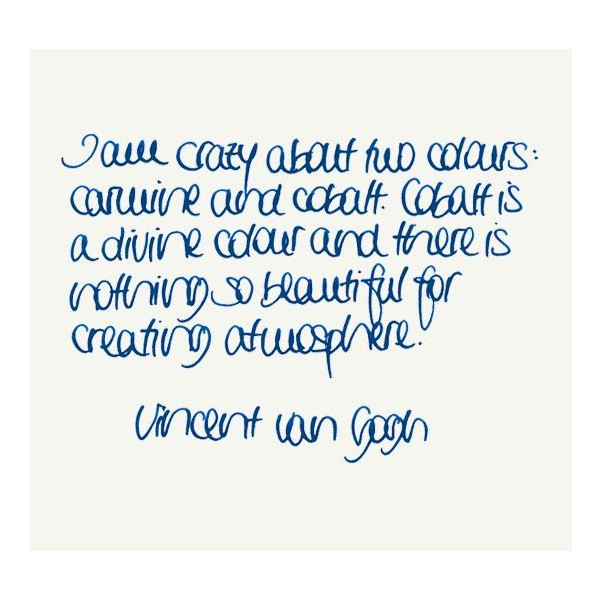 I am crazy about two colours:
carmine and cobalt. Cobalt is
a divine colour and there is
nothing so beautiful for
creating atmosphere.
Vincent van Gogh